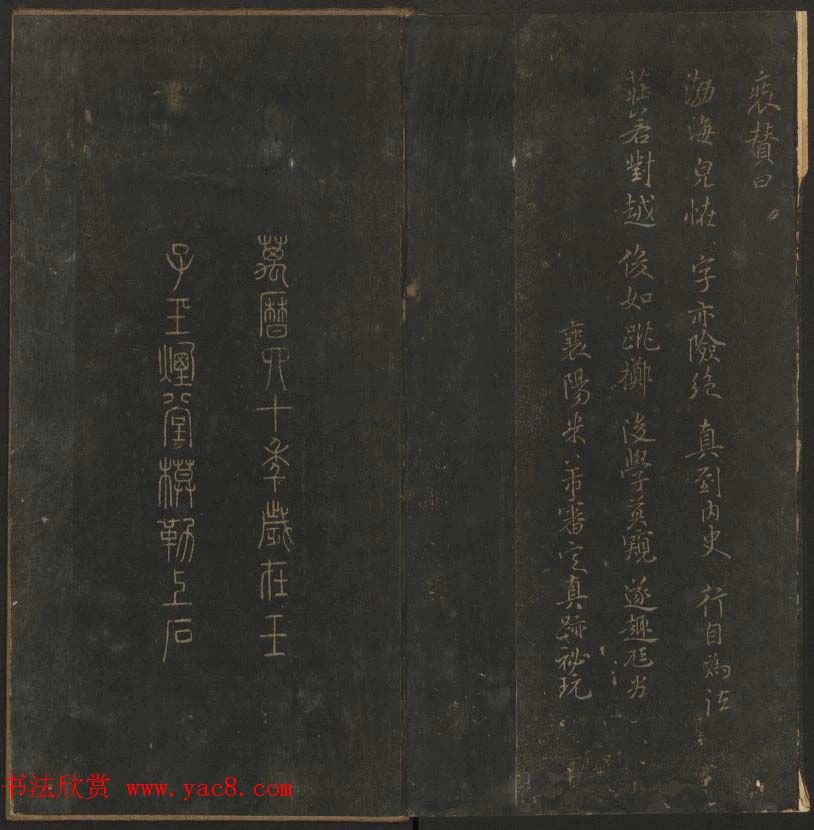 贊曰
渤海光恠 字亦險絕 真到內史 行自為法
莊若對越 俊如跳擲 後學莫窺 遂趣尪劣
襄陽米芾審定真跡祕玩
萬曆四十年歲在壬
子玉煙堂模勒上石
书法欣赏 www.yac8.com